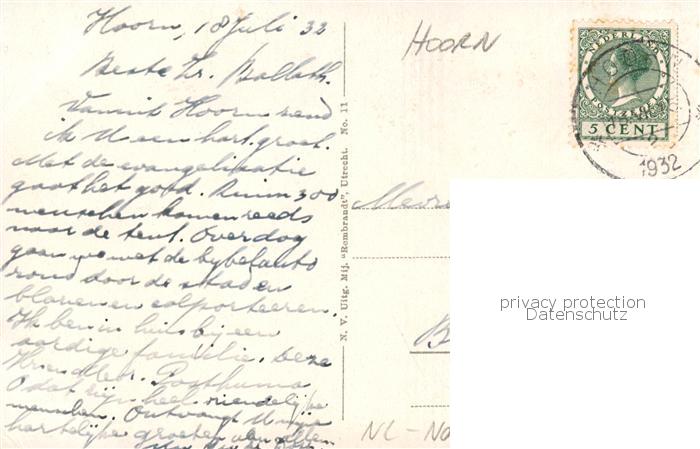 Hoorn, 18 Juli 32
Beste Zr. Bollath.
Vanuit Hoorn zend
ik U een hart. groet.
Met de evangelisatie
gaat het goed. Ruim 300
menschen komen reeds
naar de tent. Overdag
gaan we met de bybelauto
rond door de stad en
blaren en colporteeren.
Ik ben in huis bij een
aardige familie. Deze
Hr. en Mevr. Posthuma
O dat zijn heel vriendelijke
menschen. Ontvangt U mijn
hartelijke groeten van allen
HOORN
NEDERLAND
POSTZEGEL
5 CENT
1932
N. V. Uitg. Mij. "Rembrandt", Utrecht. No. 11
Mevr
B
NL - No
privacy protection
Datenschutz